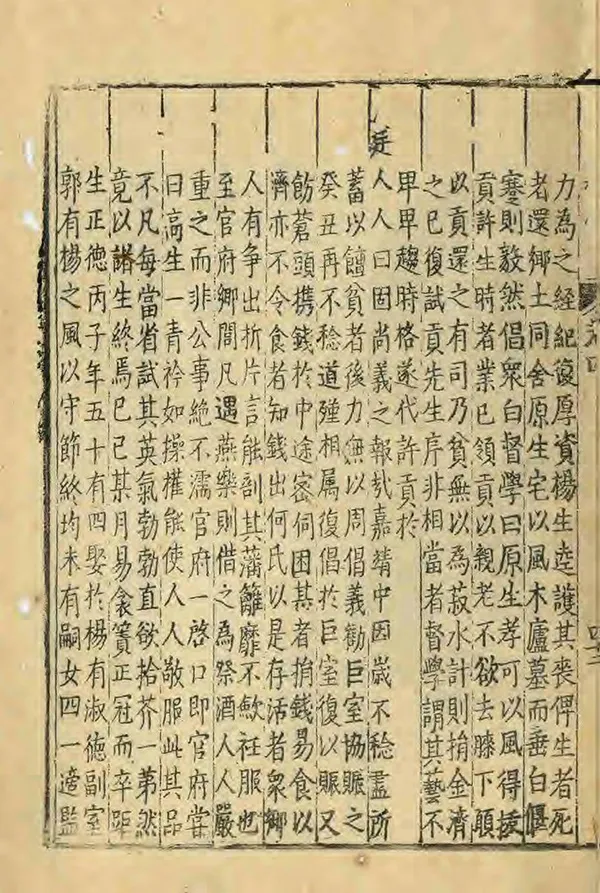 力為之經紀復厚資楊生逵護其喪俾生者死
老還鄉土同舍原生宅以風木廬墓而垂白偃
蹇則毅然倡衆白督學曰原生孝可以風得援
貢許生時者業已領貢以親老不欲去膝下願
以貢還之有司乃貧無以為菽水計則捐金濟
之已復試貢先生序非相當者督學謂其藝不
卑卑趨時格遂代許貢於
廷
人人曰固尚義之報哉嘉靖中因歲不稔盡所
蓄以饘貧者後力無以周倡義勸巨室協賑之
癸丑再不稔道殣相属復倡於巨室復以賑又
飭蒼頭携錢於中途密伺困其者捐錢易食以
濟亦不令食者知錢出何氏以是存活者衆鄉
人有争出折片言能剖其藩籬靡不歃衽服也
至官府鄉閭凡遇燕樂則借之為祭酒人人嚴
重之而非公事絶不濡官府一啓口即官府嘗
曰高生一青衿如操權能使人人敬服此其品
不凡每當省試其英氣勃勃直欲拾芥一第然
竟以諸生終焉已巳某月易衾簀正冠而卒距
生正德丙子年五十有四娶於楊有淑德副室
郭有楊之風以守節終均未有嗣女四一適監